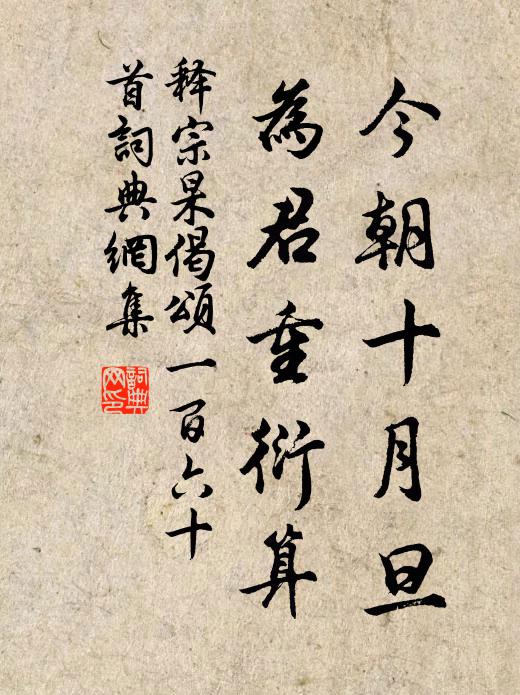 今朝十月旦
為君重衍算
释宗杲偈頌一百六十
首詞典網集
詞典网印